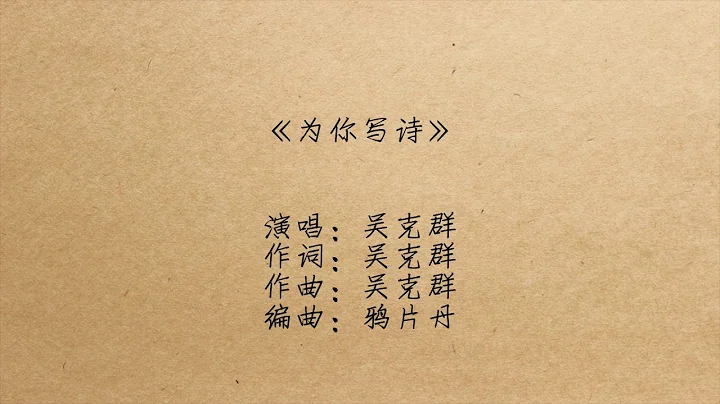 《为你写诗》
演唱：吴克群
作词：吴克群
作曲：吴克群
编曲：鸦片丹